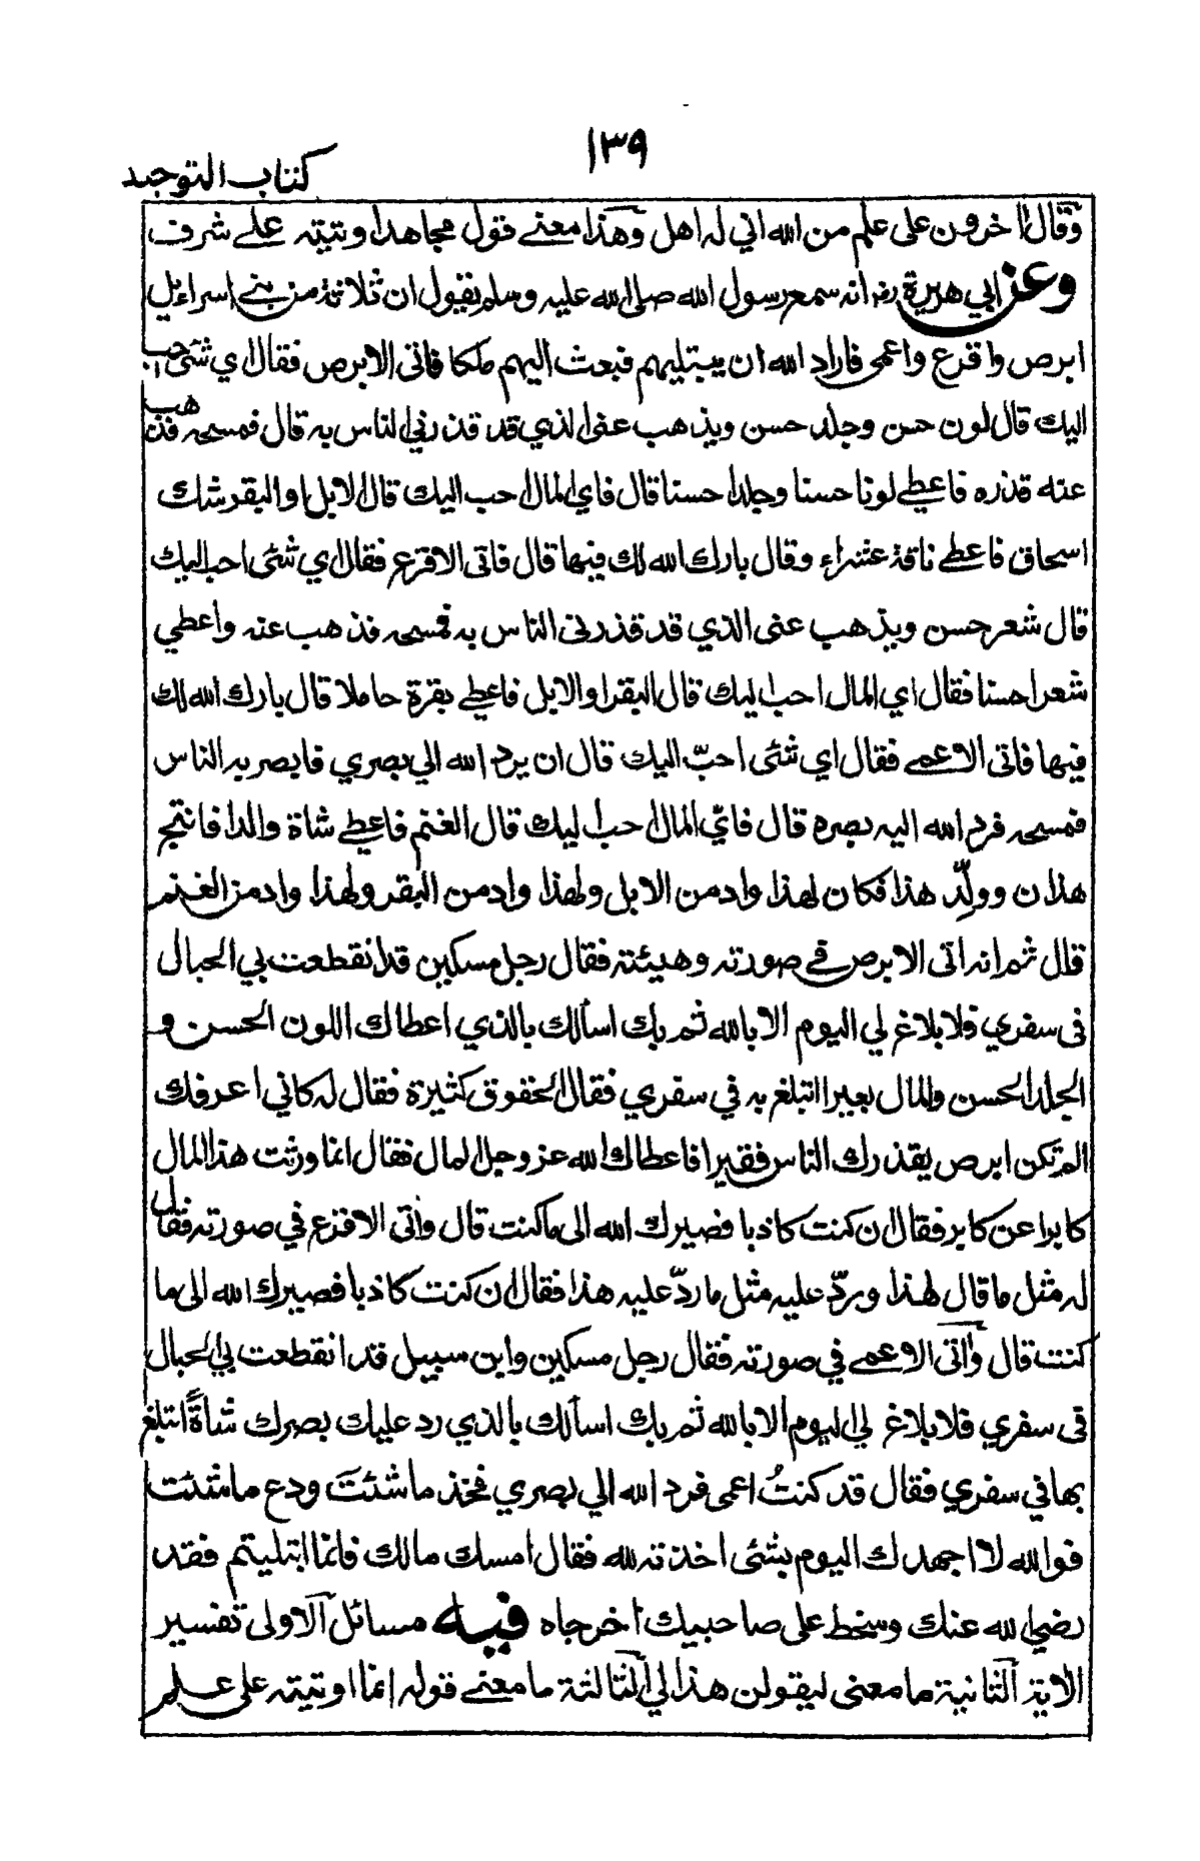 ١٣٩
كتاب التوحيد
وقال اخرون على علم من الله اني له اهل وهذا معنے قول مجاهد اوتيته علے شرف
وعن ابي هريرة رض انه سمع رسول الله صلى الله عليه وسلم يقول ان ثلاثة من بنے اسرائيل
ابرص واقرع واعمى فاراد الله ان يبتليهم فبعث اليهم ملكا فاتى الابرص فقال اي شئ احب
اليك قال لون حسن وجلد حسن ويذهب عنى الذي قد قذرني الناس به قال فمسحه فذهب
عنه قذره فاعطے لونا حسنا وجلدا حسنا قال فاي المال احب اليك قال الابل او البقر شك
اسحاق فاعطے ناقة عشراء وقال بارك الله لك فيها قال فاتى الاقرع فقال اي شئ احب اليك
قال شعر حسن ويذهب عنى الذي قد قذرنى الناس به فمسحه فذهب عنه واعطي
شعرا حسنا فقال اي المال احب اليك قال البقر او الابل فاعطے بقرة حاملا قال بارك الله لك
فيها فاتى الاعمے فقال اي شئ احبّ اليك قال ان يرد الله الي بصري فابصر به الناس
فمسحه فرد الله اليه بصره قال فايّ المال احب اليك قال الغنم فاعطے شاة والدا فانتج
هذان وولّد هذا فكان لهذا واد من الابل ولهذا واد من البقر ولهذا واد من الغنم
قال ثم انه اتى الابرص في صورته وهيئته فقال رجل مسكين قد انقطعت بي الحبال
فى سفري فلا بلاغ لي اليوم الا بالله ثم بك اسألك بالذي اعطاك اللون الحسن و
الجلد الحسن والمال بعيرا اتبلغ به في سفري فقال الحقوق كثيرة فقال له كاني اعرفك
الم تكن ابرص يقذرك الناس فقيرا فاعطاك الله عز وجل المال فقال انما ورثت هذا المال
كابرا عن كابر فقال ان كنت كاذبا فصيرك الله الى ما كنت قال واتى الاقرع في صورته فقال
له مثل ما قال لهذا وردّ عليه مثل ما ردّ عليه هذا فقال ان كنت كاذبا فصيرك الله الى ما
كنت قال واتى الاعمے في صورته فقال رجل مسكين وابن سبيل قد انقطعت بي الحبال
فى سفري فلا بلاغ لي اليوم الا بالله ثم بك اسألك بالذي رد عليك بصرك شاةً اتبلغ
بها في سفري فقال قد كنتُ اعمى فرد الله الي بصري فخذ ما شئتَ ودع ما شئت
فوالله لا اجهدك اليوم بشئ اخذته لله فقال امسك مالك فانما ابتليتم فقد
رضي الله عنك وسخط على صاحبيك اخرجاه فيه مسائل الاولى تفسير
الاية الثانية ما معنى ليقولن هذا لي الثالثة ما معنے قوله انما اوتيته على علم